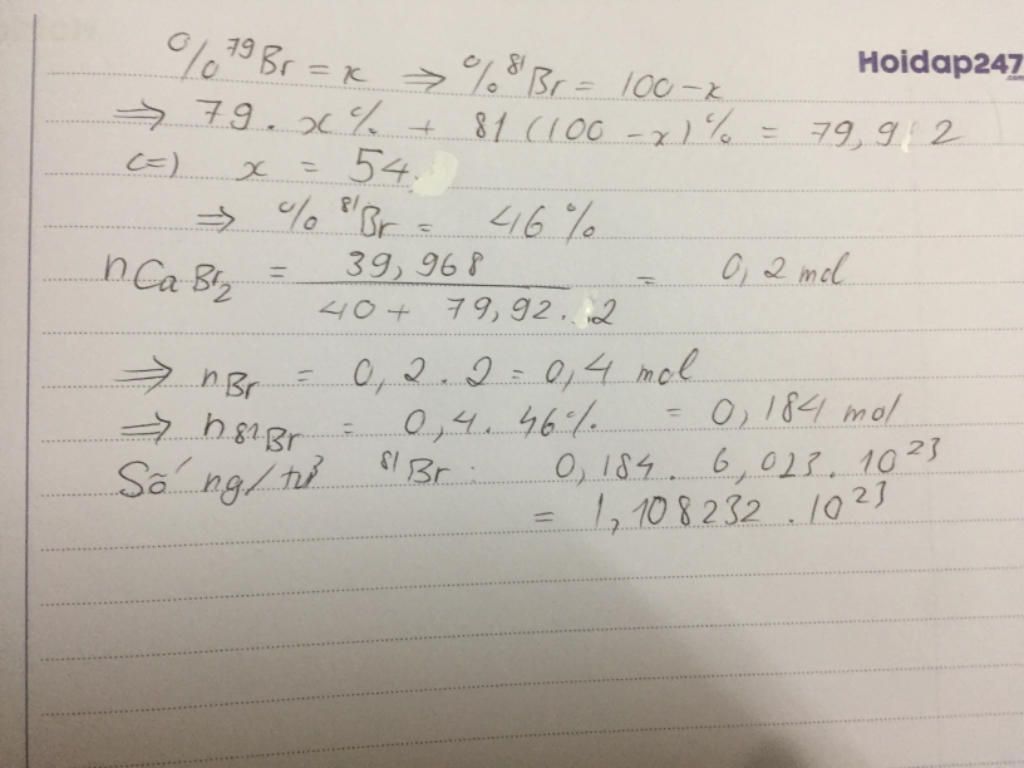 Hoidap247
.com
% ⁷⁹Br = x ⇒ % ⁸¹Br = 100 - x
⇒ 79 . x% + 81 (100 - x)% = 79,9 2
(=) x = 54
⇒ % ⁸¹Br = 46%
nCaBr₂ = 39,968 / 40 + 79,92 . 2 = 0,2 mol
⇒ nBr = 0,2 . 2 = 0,4 mol
⇒ n81Br = 0,4 . 46% = 0,184 mol
Số ng/tử ⁸¹Br : 0,184 . 6,023 . 10²³
= 1,108232 . 10²³